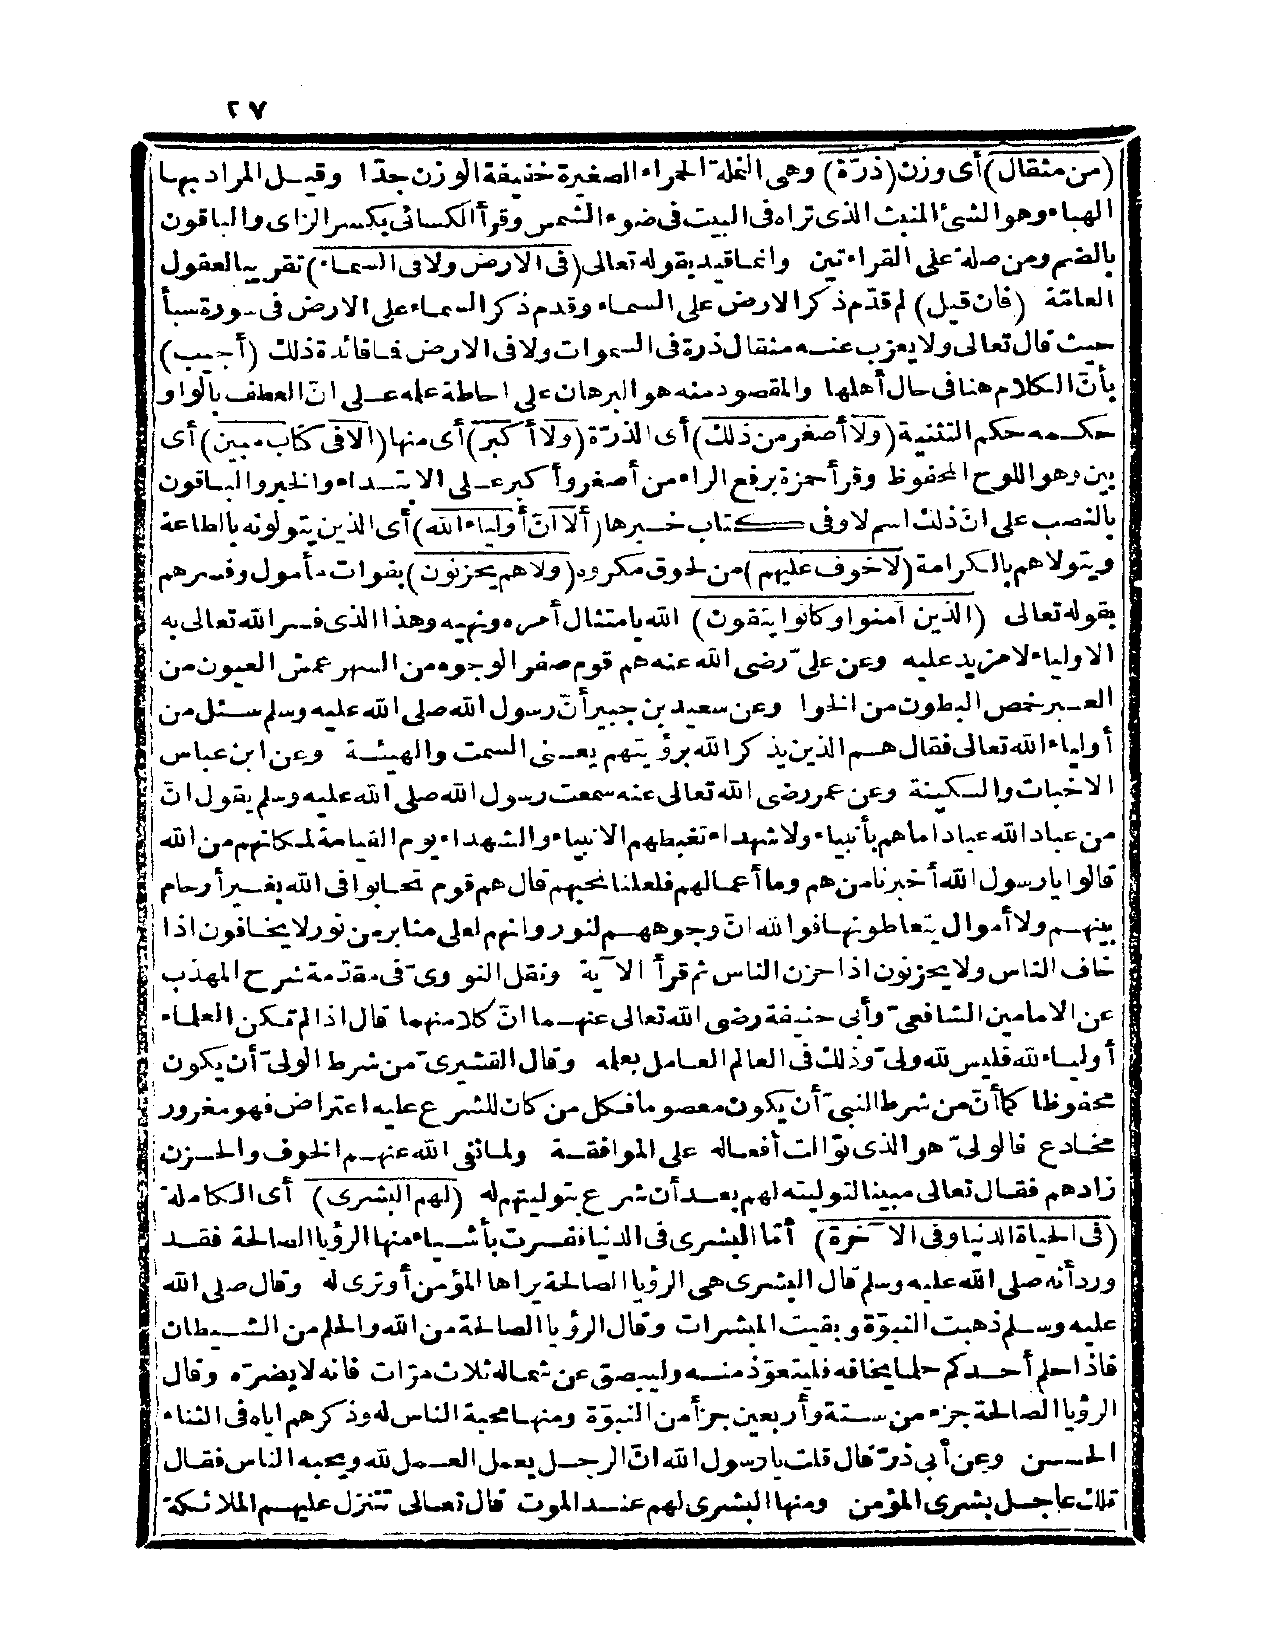 ٢٧
(من مثقال) أى وزن (ذرّة) وهى النملة الحمراء الصغيرة خفيفة الوزن جدّا وقيل المراد بها
الهباء وهو الشئ المنبث الذى تراه فى البيت فى ضوء الشمس وقرأ الكسائى بكسر الزاى والباقون
بالضم ومن صلة على القراءتين وانما قيد بقوله تعالى (فى الارض ولا فى السماء) تقريبا لعقول
العامّة (فان قيل) لم قدّم ذكر الارض على السماء وقدم ذكر السماء على الارض فى سورة سبأ
حيث قال تعالى ولا يعزب عنه مثقال ذرة فى السموات ولا فى الارض فما فائدة ذلك (أجيب)
بأنّ الكلام هنا فى حال أهلها والمقصود منه هو البرهان على احاطة علمه على انّ العطف بالواو
حكمه حكم التثنية (ولا أصغر من ذلك) أى الذرّة (ولا أكبر) أى منها (الا فى كتاب مبين) أى
بين وهو اللوح المحفوظ وقرأ حمزة برفع الراء من أصغر وأكبر على الابتداء والخبر والباقون
بالنصب على انّ ذلك اسم لا وفى كتاب خبرها (ألا انّ أولياء الله) أى الذين يتولونه بالطاعة
ويتولاهم بالكرامة (لا خوف عليهم) من لحوق مكروه (ولا هم يحزنون) بفوات مأمول وفسرهم
بقوله تعالى (الذين آمنوا وكانوا يتقون) الله بامتثال أمره ونهيه وهذا الذى فسر الله تعالى به
الاولياء لا مزيد عليه وعن علىّ رضى الله عنه هم قوم صفر الوجوه من السهر عمش العيون من
العبر خمص البطون من الخوا وعن سعيد بن جبير أنّ رسول الله صلى الله عليه وسلم سئل من
أولياء الله تعالى فقال هم الذين يذكر الله برؤيتهم يعنى السمت والهيئة وعن ابن عباس
الاخبات والسكينة وعن عمر رضى الله تعالى عنه سمعت رسول الله صلى الله عليه وسلم يقول انّ
من عباد الله عبادا ما هم بأنبياء ولا شهداء تغبطهم الانبياء والشهداء يوم القيامة لمكانهم من الله
قالوا يا رسول الله أخبرنا من هم وما أعمالهم فلعلنا نحبهم قال هم قوم تحابوا فى الله بغير أرحام
بينهم ولا أموال يتعاطونها فوالله انّ وجوههم لنور وانهم لعلى منابر من نور لا يخافون اذا
خاف الناس ولا يحزنون اذا حزن الناس ثم قرأ الآية ونقل النووىّ فى مقدّمة شرح المهذب
عن الامامين الشافعىّ وأبى حنيفة رضى الله تعالى عنهما انّ كلا منهما قال اذا لم تكن العلماء
أولياء لله فليس لله ولىّ وذلك فى العالم العامل بعلمه وقال القشيرىّ من شرط الولىّ أن يكون
محفوظا كما أنّ من شرط النبىّ أن يكون معصوما فكل من كان للشرع عليه اعتراض فهو مغرور
مخادع فالولىّ هو الذى توالت أفعاله على الموافقة ولما نفى الله عنهم الخوف والحزن
زادهم فقال تعالى مبينا لتوليته لهم بعد أن شرع بتوليتهم له (لهم البشرى) أى الكاملة
(فى الحياة الدنيا وفى الآخرة) أمّا البشرى فى الدنيا ففسرت بأشياء منها الرؤيا الصالحة فقد
ورد أنه صلى الله عليه وسلم قال البشرى هى الرؤيا الصالحة يراها المؤمن أو ترى له وقال صلى الله
عليه وسلم ذهبت النبوّة وبقيت المبشرات وقال الرؤيا الصالحة من الله والحلم من الشيطان
فاذا حلم أحدكم حلما يخافه فليتعوّذ منه وليبصق عن شماله ثلاث مرّات فانه لا يضرّه وقال
الرؤيا الصالحة جزء من ستة وأربعين جزأ من النبوّة ومنها محبة الناس له وذكرهم اياه فى الثناء
الحسن وعن أبى ذرّ قال قلت يا رسول الله انّ الرجل يعمل العمل لله ويحبه الناس فقال
تلك عاجل بشرى المؤمن ومنها البشرى لهم عند الموت قال تعالى تتنزل عليهم الملائكة